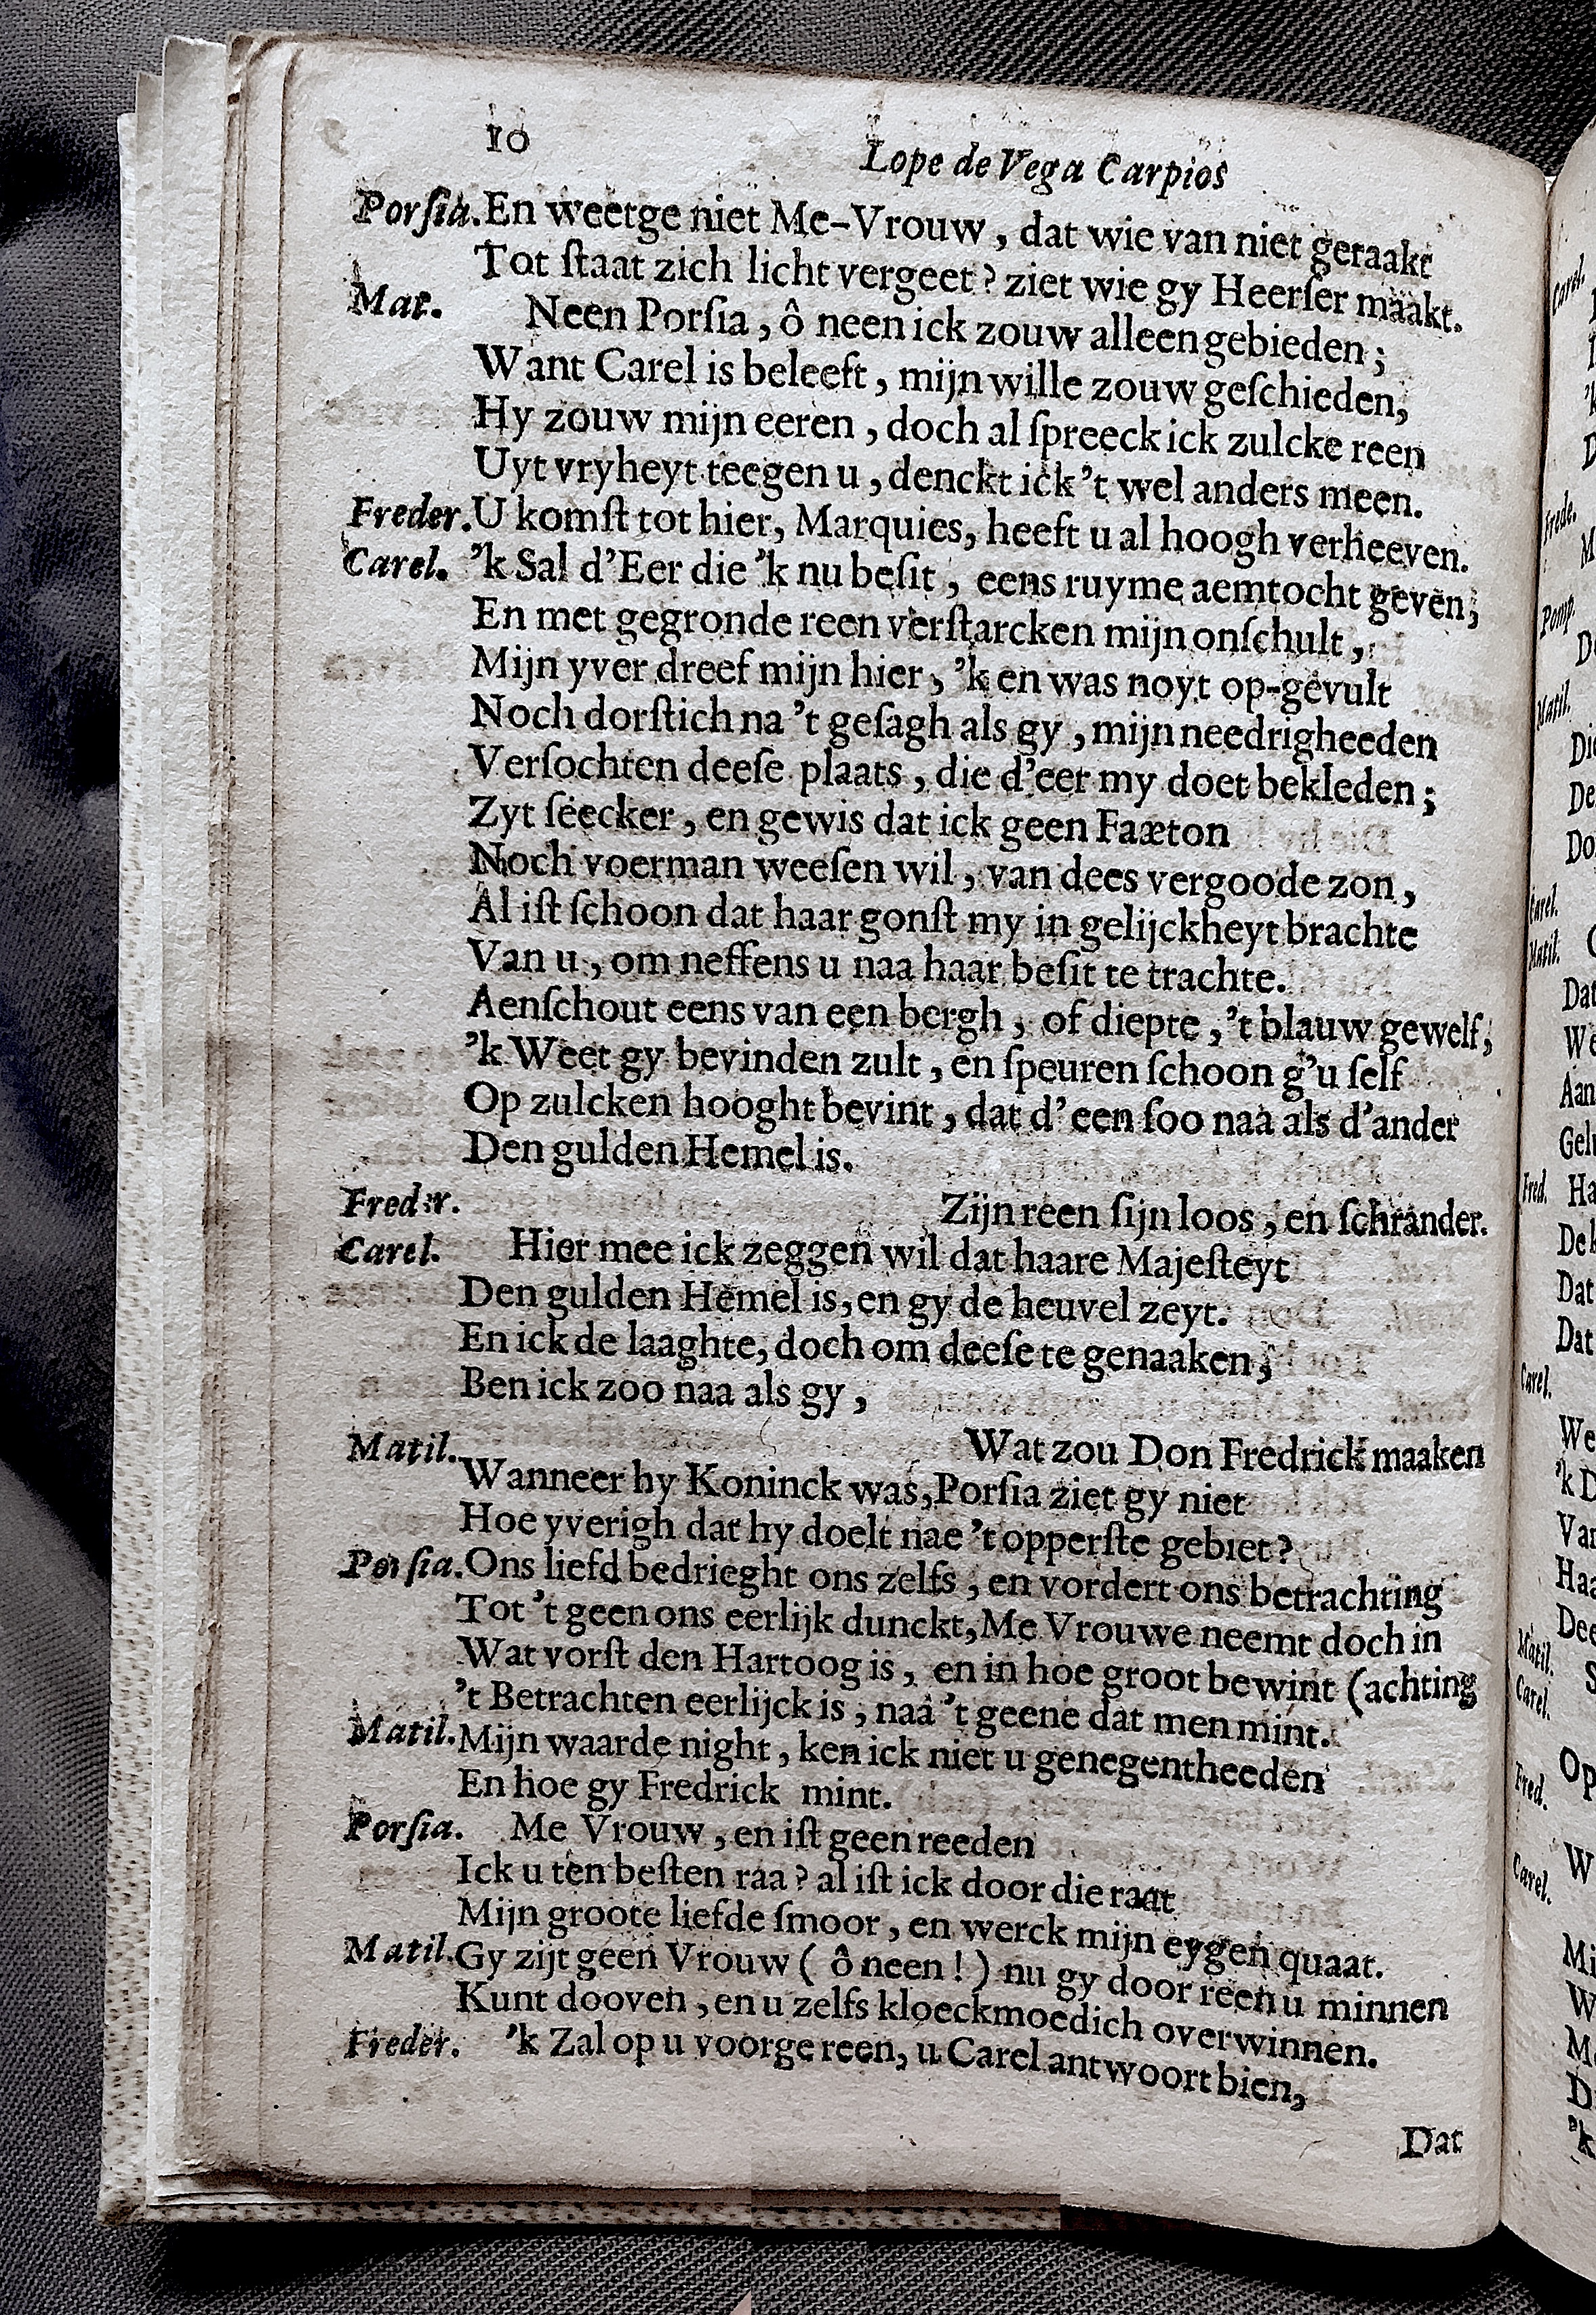 10 Lope de Vega Carpios
Porſia. En weetge niet Me-Vrouw, dat wie van niet geraakt
Tot ſtaat zich licht vergeet? ziet wie gy Heerſer maakt.
Mat. Neen Porſia, ô neen ick zouw alleen gebieden;
Want Carel is beleeft, mijn wille zouw geſchieden,
Hy zouw mijn eeren, doch al ſpreeck ick zulcke reen
Uyt vryheyt teegen u, denckt ick 't wel anders meen.
Freder. U komſt tot hier, Marquies, heeft u al hoogh verheeven.
Carel. 'k Sal d'Eer die 'k nu beſit, eens ruyme aemtocht geven;
En met gegronde reen verſtarcken mijn onſchult,
Mijn yver dreef mijn hier, 'k en was noyt op-gevult
Noch dorſtich na 't geſagh als gy, mijn needrigheeden
Verſochten deeſe plaats, die d'eer my doet bekleden;
Zyt ſeecker, en gewis dat ick geen Faæton
Noch voerman weeſen wil, van dees vergoode zon,
Al iſt ſchoon dat haar gonſt my in gelijckheyt brachte
Van u, om neffens u naa haar beſit te trachte.
Aenſchout eens van een bergh, of diepte, 't blauw gewelf,
'k Weet gy bevinden zult, en ſpeuren ſchoon g'u ſelf
Op zulcken hooght bevint, dat d'een ſoo naa als d'ander
Den gulden Hemel is.
Freder. Zijn reen ſijn loos, en ſchrander.
Carel. Hier mee ick zeggen wil dat haare Majeſteyt
Den gulden Hemel is, en gy de heuvel zeyt.
En ick de laaghte, doch om deeſe te genaaken,
Ben ick zoo naa als gy,
Matil. Wat zou Don Fredrick maaken
Wanneer hy Koninck was, Porſia ziet gy niet
Hoe yverigh dat hy doelt nae 't opperſte gebiet?
Porſia. Ons liefd bedrieght ons zelfs, en vordert ons betrachting
Tot 't geen ons eerlijk dunckt, Me Vrouwe neemt doch in
Wat vorſt den Hartoog is, en in hoe groot bewint (achting
't Betrachten eerlijck is, naa 't geene dat men mint.
Matil. Mijn waarde night, ken ick niet u genegentheeden
En hoe gy Fredrick mint.
Porſia. Me Vrouw, en iſt geen reeden
Ick u ten beſten raa? al iſt ick door die raat
Mijn groote liefde ſmoor, en werck mijn eygen quaat.
Matil. Gy zijt geen Vrouw (ô neen!) nu gy door reen u minnen
Kunt dooven, en u zelfs kloeckmoedich overwinnen.
Freder. 'k Zal op u voorge reen, u Carel antwoort bien,
Dat